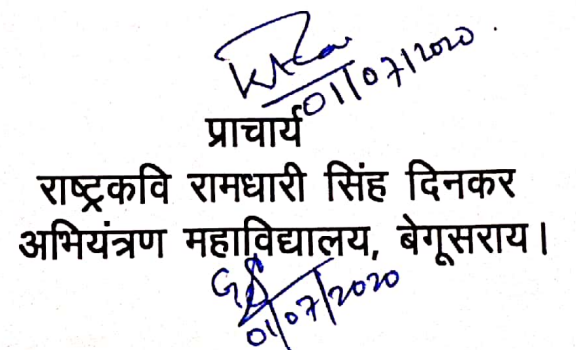 01/07/2020.
प्राचार्य
राष्ट्रकवि रामधारी सिंह दिनकर
अभियंत्रण महाविद्यालय, बेगूसराय।
01/07/2020